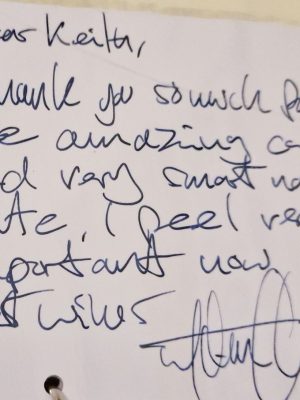 ear Keith,
hank you so much fo
e amazing ca
d very smart no
te, I feel ver
portant now
st wishes